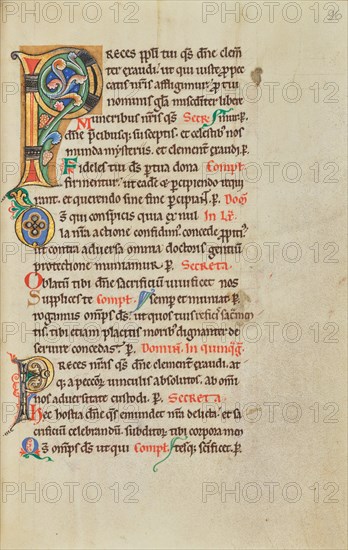 96
PRECES ppłi tui qs dñe clem
ter exaudi. ut qui iuste pro pec
catis nr̄is affligimur. p tui
nominis głia misericditer liberē
Muneribus nr̄is qs Secr̄
dñe p̄cibusq; susceptis. et celestib nos
munda mysteriis. et clementer exaudi. p.
Fideles tui ds p tua dona Compł
firmentur. ut eadē et percipiendo requi
rant. et querendo sine fine percipiant. p. Dom̄
DS qui conspicis quia ex nul In Lx
la nr̄a actione confidim. concede ppiti.
ut contra adversa omnia doctoris gentium
protectione muniamur. p. Secreta
Oblatum tibi dñe sacrificium vivificet nos
Supplices te Compł semp et muniat. p.
rogamus omps ds. ut quos tuis reficis sacmen
tis. tibi etiam placitis morib dignanter de
servire concedas. p. Domin̄. in quinqg̃.
PReces nr̄as qs dñe clementer exaudi. at
q; a peccator vinculis absolutos. ab om̄i
nos adversitate custodi. p. Secreta
Hec hostia dñe qs emundet nr̄a delicta. et sa
crificium celebrandū. subditor tibi corpora men
Qs omps ds ut qui Compł tesq; sc̄ificet. p.
PHOTO12